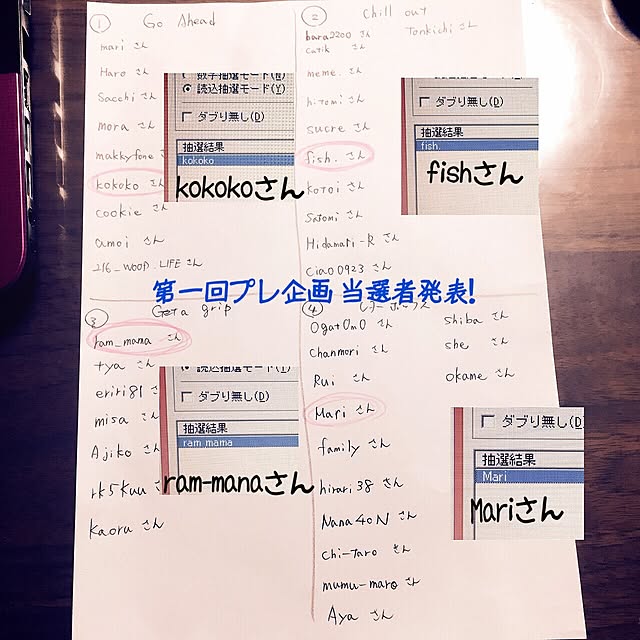 ① Go Ahead
mari さん
Haro さん
Sacchi さん
mora さん
makkyfone さん
kokoko さん
cookie さん
amoi さん
216_WOOD.LIFE さん
数字抽選モード(N)
読込抽選モード(Y)
ダブり無し(D)
抽選結果
kokoko
kokokoさん
② Chill out
bara2200 さん
Tonkichi さん
catik さん
meme. さん
hitomi さん
sucre さん
fish. さん
kotoi さん
Satomi さん
Hidamari-R さん
Ciao0923 さん
ダブり無し(D)
抽選結果
fish.
fishさん
第一回プレ企画 当選者発表!
③ Get a grip
ram_mama さん
tya さん
eriri81 さ
misa さん
Ajiko さん
rk5kuu さ
Kaoru さん
読込抽選モード(Y)
ダブり無し(D)
抽選結果
ram mama
ram-manaさん
④
Ogat0m0 さん
Chanmori さん
Rui さん
Mari さん
family さん
hirari38 さん
Nana40N さん
Chi-Taro さん
mumu-maro さん
Aya さん
shiba さん
she さん
okame さん
ダブり無し(D)
抽選結果
Mari
Mariさん